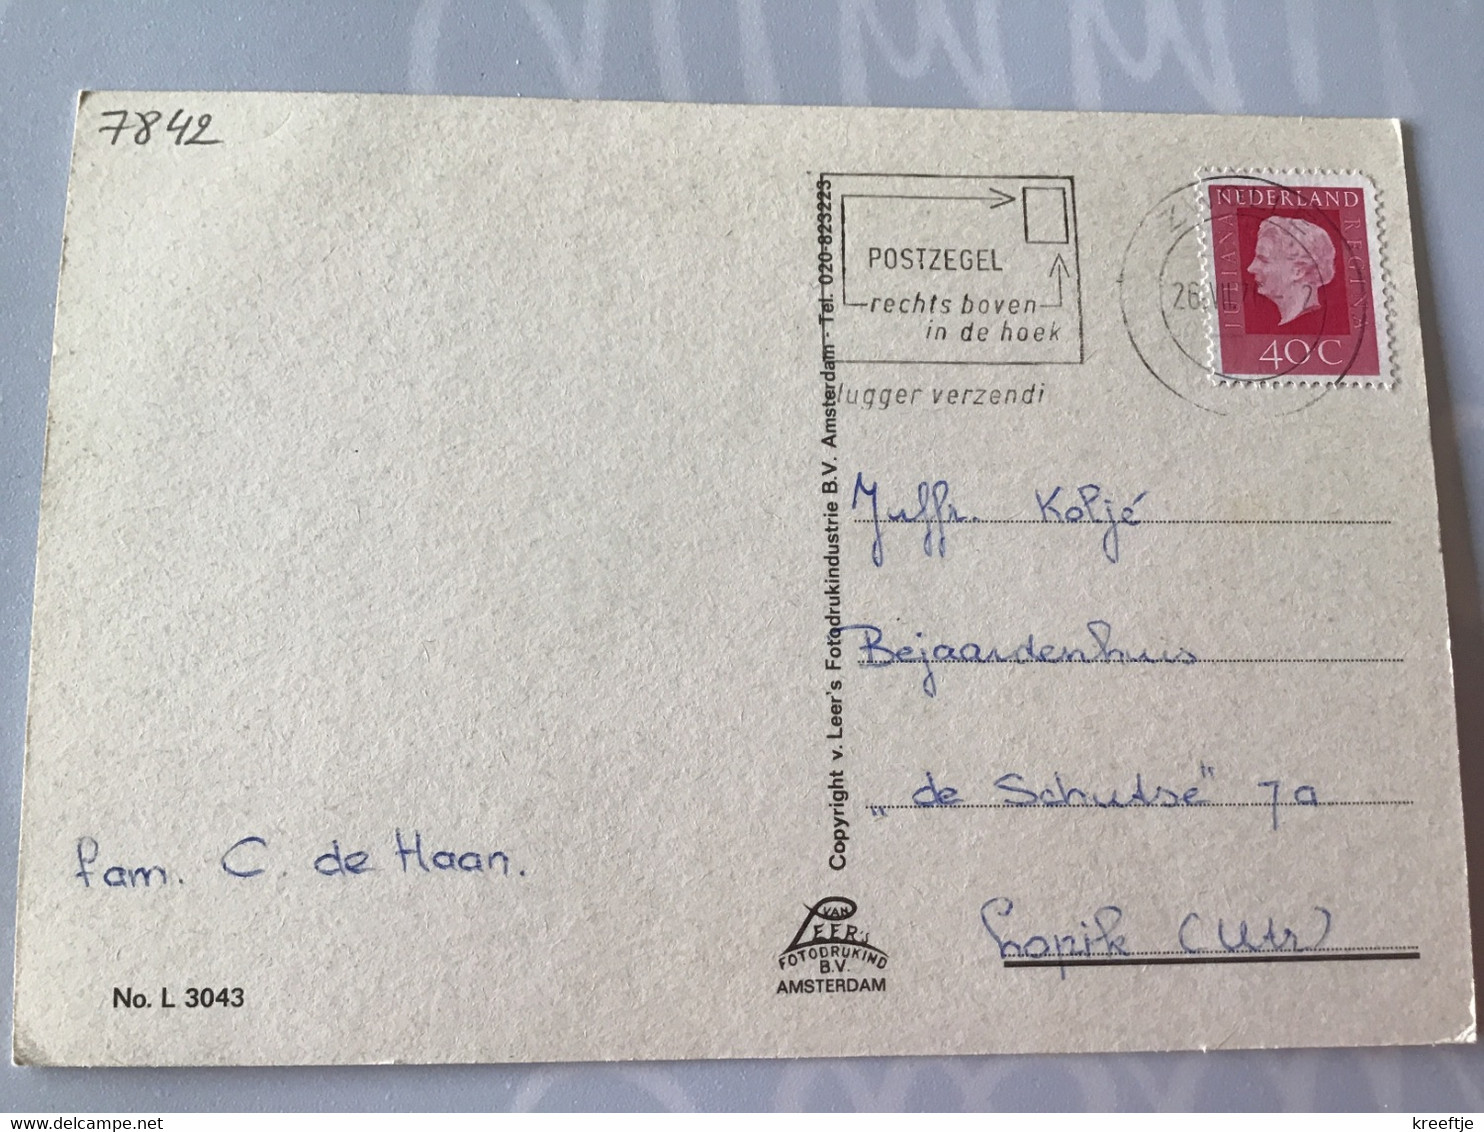 7842
POSTZEGEL
rechts boven
in de hoek
lugger verzendi
NEDERLAND
JULIANA
REGINA
40C
Copyright v. Leer's Fotodrukindustrie B.V. Amsterdam - Tel. 020-823223
Juffr. Koljé
Bejaardenhuis
„de Schutse" 7a
Lopik (Utr)
fam. C. de Haan.
VAN
LEER'S
FOTODRUKIND
B.V.
AMSTERDAM
No. L 3043
kreeftje